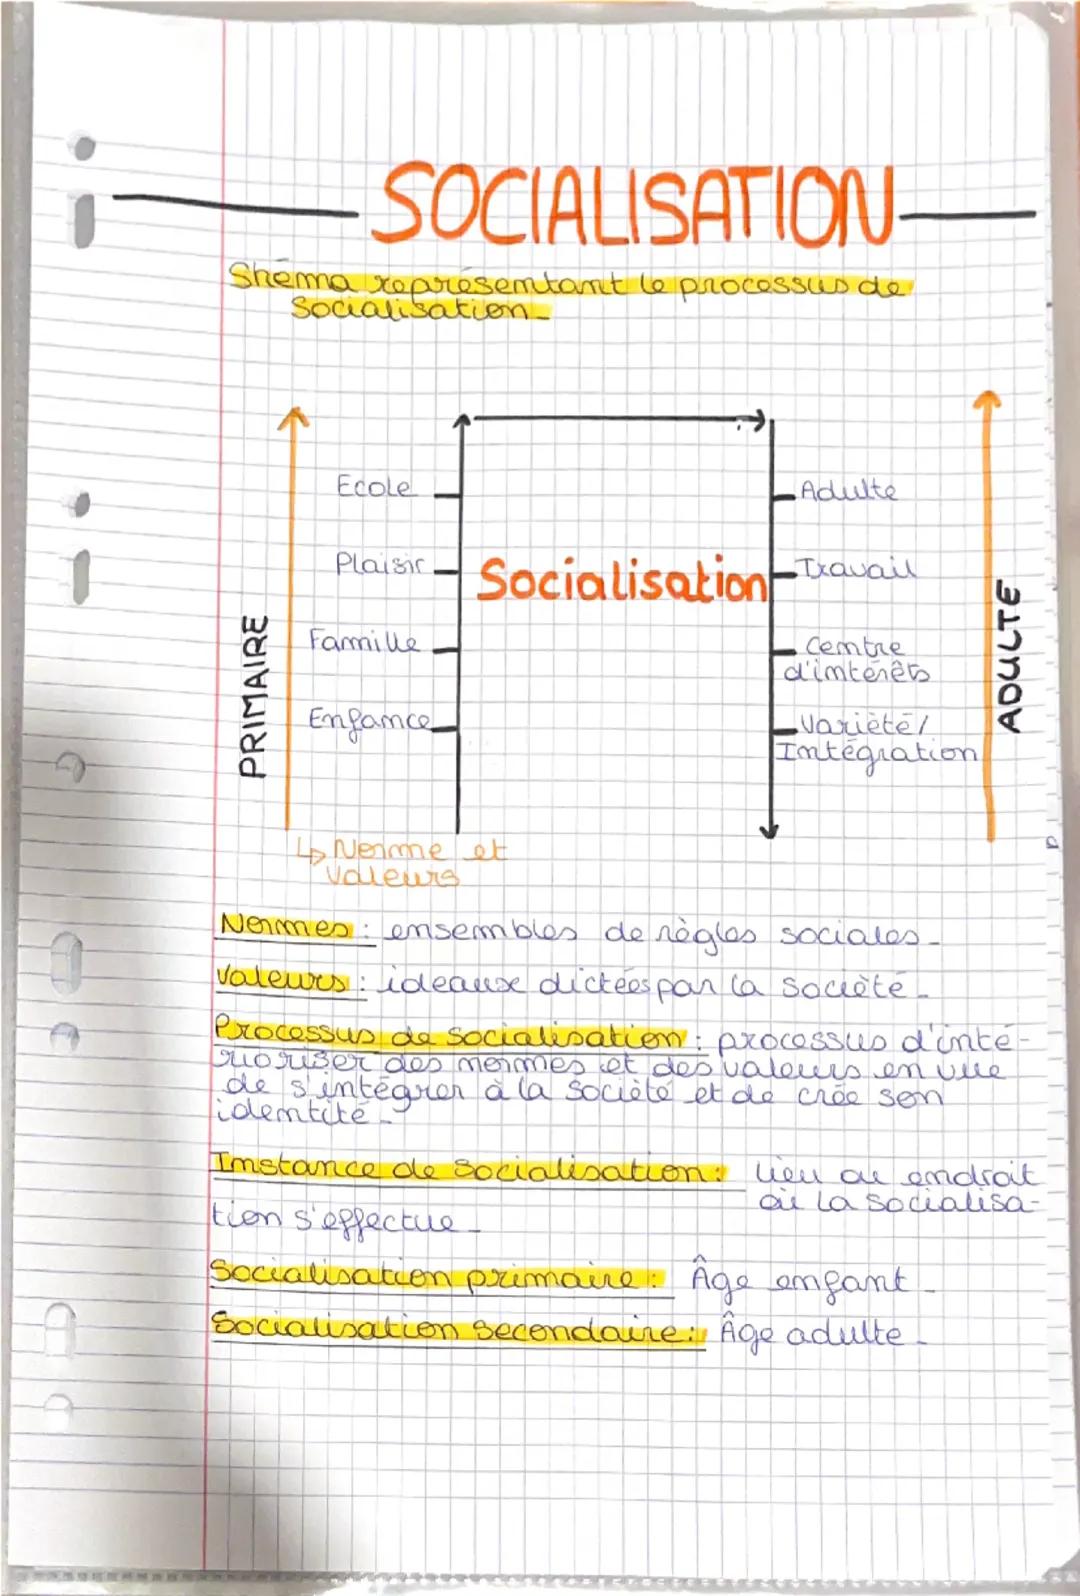 SOCIALISATION
Shéma représentant le processus de
Socialisation
Ecole
Adulte
Plaisir
Socialisation
Travail
PRIMAIRE
Famille
Centre
d'intérêts
ADULTE
Enfance
Variété/
Intégration
Norme et
valeurs
Normes : ensembles de règles sociales.
Valeurs : ideaux dictées par la société.
Processus de socialisation : processus d'inté-
rioriser des normes et des valeurs en vue
de s'intégrer à la société et de crée son
identité.
Instance de socialisation : lieu ou endroit
où la socialisa-
tion s'effectue.
Socialisation primaire : Âge enfant.
Socialisation secondaire : Âge adulte.